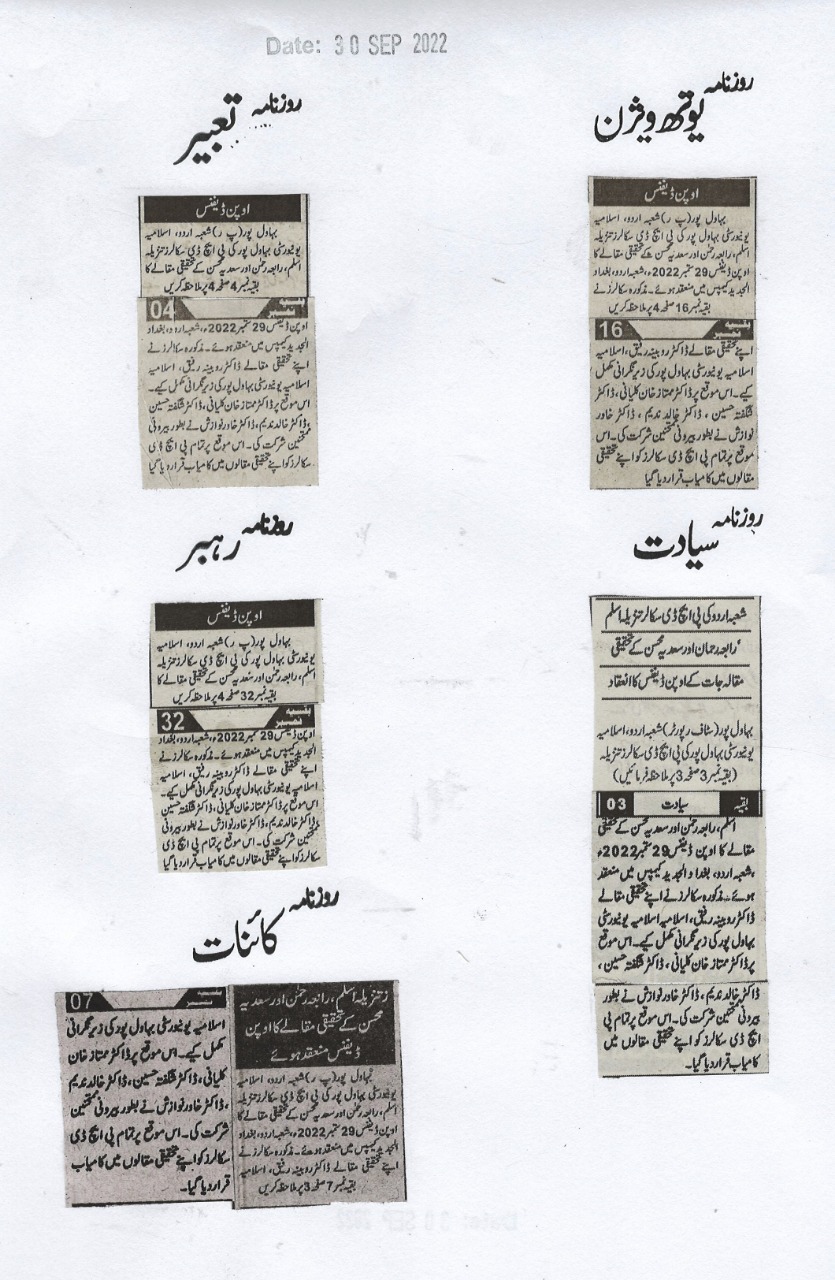 Date: 30 SEP 2022
روزنامہ یوتھ ویژن
اوپن ڈیفنس
بہاول پور(پ ر)شعبہ اردو، اسلامیہ
یونیورسٹی بہاول پور کی پی ایچ ڈی سکالرز تنزیلہ
اسلم، رابعہ رحمٰن اور سعدیہ محسن کے تحقیقی مقالے کا
اوپن ڈیفنس 29 ستمبر 2022ء، شعبہ اردو، بغداد
الجدید کیمپس میں منعقد ہوئے۔ مذکورہ سکالرز نے
بقیہ نمبر 16 صفحہ 4 پر ملاحظہ کریں
بقیہ نمبر 16
اپنے تحقیقی مقالے ڈاکٹر روبینہ رفیق، اسلامیہ
اسلامیہ یونیورسٹی بہاول پور کی زیر نگرانی مکمل
کیے۔ اس موقع پر ڈاکٹر ممتاز خان کلیانی، ڈاکٹر
شگفتہ حسین ، ڈاکٹر خالد ندیم ، ڈاکٹر خاور
نوازش نے بطور بیرونی ممتحنین شرکت کی۔ اس
موقع پر تمام پی ایچ ڈی سکالرز کو اپنے تحقیقی
مقالوں میں کامیاب قرار دیا گیا
روزنامہ تعبیر
اوپن ڈیفنس
بہاول پور(پ ر)شعبہ اردو، اسلامیہ
یونیورسٹی بہاول پور کی پی ایچ ڈی سکالرز تنزیلہ
اسلم، رابعہ رحمٰن اور سعدیہ محسن کے تحقیقی مقالے کا
بقیہ نمبر 4 صفحہ 4 پر ملاحظہ کریں
بقیہ نمبر 04
اوپن ڈیفنس 29 ستمبر 2022ء، شعبہ اردو، بغداد
الجدید کیمپس میں منعقد ہوئے۔ مذکورہ سکالرز نے
اپنے تحقیقی مقالے ڈاکٹر روبینہ رفیق، اسلامیہ
اسلامیہ یونیورسٹی بہاول پور کی زیر نگرانی مکمل کیے۔
اس موقع پر ڈاکٹر ممتاز خان کلیانی، ڈاکٹر شگفتہ حسین
، ڈاکٹر خالد ندیم، ڈاکٹر خاور نوازش نے بطور بیرونی
ممتحنین شرکت کی۔ اس موقع پر تمام پی ایچ ڈی
سکالرز کو اپنے تحقیقی مقالوں میں کامیاب قرار دیا گیا
روزنامہ سیادت
شعبہ اردو کی پی ایچ ڈی سکالرز تنزیلہ اسلم
'رابعہ رحمان اور سعدیہ محسن کے تحقیقی
مقالہ جات کے اوپن ڈیفنس کا انعقاد
بہاول پور(سٹاف رپورٹر) شعبہ اردو، اسلامیہ
یونیورسٹی بہاول پور کی پی ایچ ڈی سکالرز تنزیلہ
(بقیہ نمبر 3 صفحہ 3 پر ملاحظہ فرمائیں)
بقیہ سیادت 03
اسلم، رابعہ رحمٰن اور سعدیہ محسن کے تحقیقی
مقالے کا اوپن ڈیفنس 29 ستمبر 2022ء
،شعبہ اردو، بغداد الجدید کیمپس میں منعقد
ہوئے۔ مذکورہ سکالرز نے اپنے تحقیقی مقالے
ڈاکٹر روبینہ رفیق، اسلامیہ اسلامیہ یونیورسٹی
بہاول پور کی زیر نگرانی مکمل کیے۔ اس موقع
پر ڈاکٹر ممتاز خان کلیانی، ڈاکٹر شگفتہ حسین ،
ڈاکٹر خالد ندیم، ڈاکٹر خاور نوازش نے بطور
بیرونی ممتحنین شرکت کی۔ اس موقع پر تمام پی
ایچ ڈی سکالرز کو اپنے تحقیقی مقالوں میں
کامیاب قرار دیا گیا۔
روزنامہ رہبر
اوپن ڈیفنس
بہاول پور(پ ر)شعبہ اردو، اسلامیہ
یونیورسٹی بہاول پور کی پی ایچ ڈی سکالرز تنزیلہ
اسلم، رابعہ رحمٰن اور سعدیہ محسن کے تحقیقی مقالے کا
بقیہ نمبر 32 صفحہ 4 پر ملاحظہ کریں
بقیہ نمبر 32
اوپن ڈیفنس 29 ستمبر 2022ء، شعبہ اردو، بغداد
الجدید کیمپس میں منعقد ہوئے۔ مذکورہ سکالرز نے
اپنے تحقیقی مقالے ڈاکٹر روبینہ رفیق، اسلامیہ
اسلامیہ یونیورسٹی بہاول پور کی زیر نگرانی مکمل کیے۔
اس موقع پر ڈاکٹر ممتاز خان کلیانی، ڈاکٹر شگفتہ حسین
، ڈاکٹر خالد ندیم، ڈاکٹر خاور نوازش نے بطور بیرونی
ممتحنین شرکت کی۔ اس موقع پر تمام پی ایچ ڈی
سکالرز کو اپنے تحقیقی مقالوں میں کامیاب قرار دیا گیا
روزنامہ کائنات
تنزیلہ اسلم، رابعہ رحمٰن اور سعدیہ
محسن کے تحقیقی مقالے کا اوپن
ڈیفنس منعقد ہوئے
بہاول پور(پ ر)شعبہ اردو، اسلامیہ
یونیورسٹی بہاول پور کی پی ایچ ڈی سکالرز تنزیلہ
اسلم، رابعہ رحمٰن اور سعدیہ محسن کے تحقیقی مقالے کا
اوپن ڈیفنس 29 ستمبر 2022ء، شعبہ اردو، بغداد
الجدید کیمپس میں منعقد ہوئے۔ مذکورہ سکالرز نے
اپنے تحقیقی مقالے ڈاکٹر روبینہ رفیق، اسلامیہ
بقیہ نمبر 7 صفحہ 3 پر ملاحظہ کریں
بقیہ نمبر 07
اسلامیہ یونیورسٹی بہاول پور کی زیر نگرانی
مکمل کیے۔ اس موقع پر ڈاکٹر ممتاز خان
کلیانی، ڈاکٹر شگفتہ حسین، ڈاکٹر خالد ندیم
، ڈاکٹر خاور نوازش نے بطور بیرونی ممتحنین
شرکت کی۔ اس موقع پر تمام پی ایچ ڈی
سکالرز کو اپنے تحقیقی مقالوں میں کامیاب
قرار دیا گیا۔